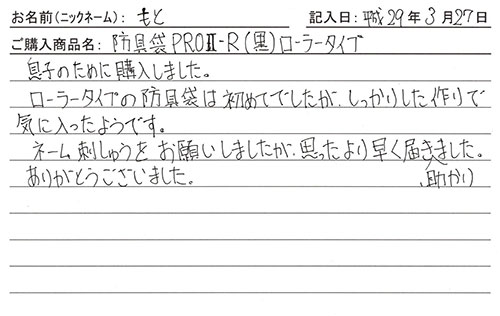 お名前(ニックネーム): もと 記入日: 平成29年3月27日
ご購入商品名: 防具袋PROⅡ-R(黒)ローラータイプ
息子のために購入しました。
ローラータイプの防具袋は初めてでしたが、しっかりした作りで
気に入ったようです。
ネーム刺しゅうをお願いしましたが、思ったより早く届き、助かりました。
ありがとうございました。